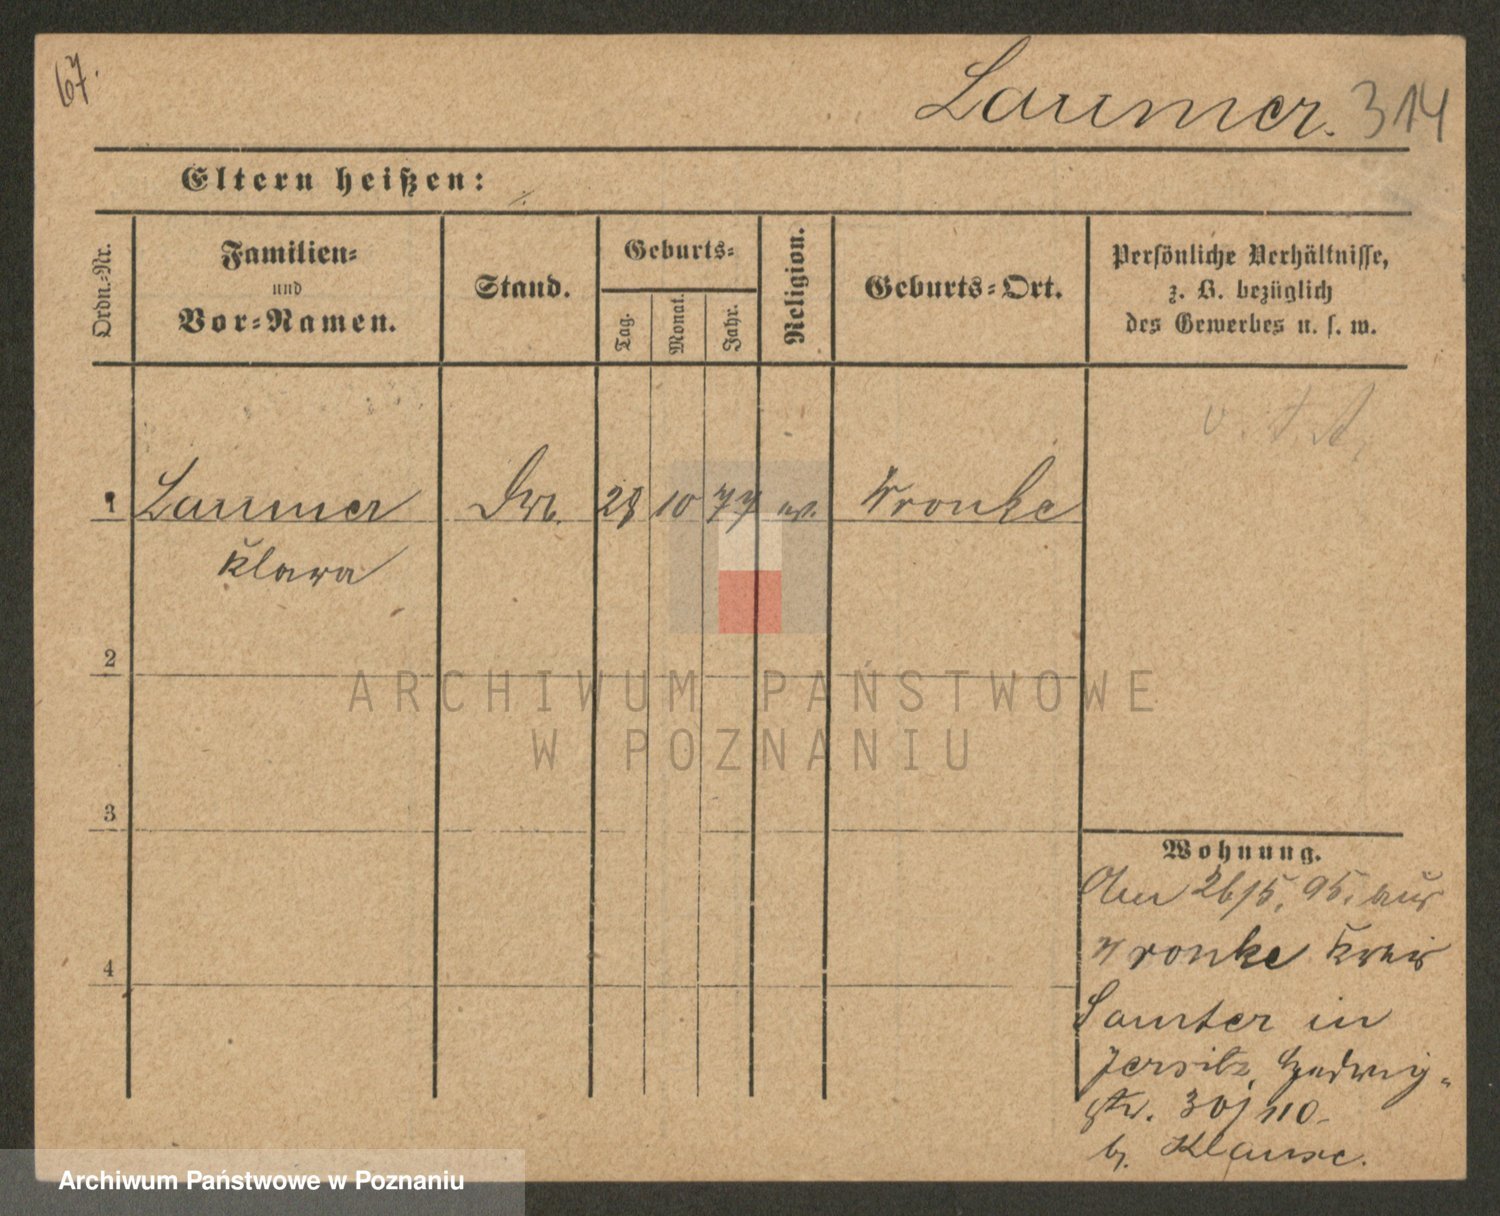 67.
Laumer. 314
Eltern heißen:
Ordn.-Nr.
Familien-
und
Vor-Namen.
Stand.
Geburts-
Tag.
Monat.
Jahr.
Religion.
Geburts-Ort.
Persönliche Verhältnisse,
z. B. bezüglich
des Gewerbes u. s. w.
1 Laumer 28 10 77 Wronke
Klara
2
3
4
Wohnung.
26/5. 95. aus
Wronke Kreis
Samter in
Jersitz, Hedwig-
str. 30
b. Klause.
ARCHIWUM PAŃSTWOWE
W POZNANIU
Archiwum Państwowe w Poznaniu